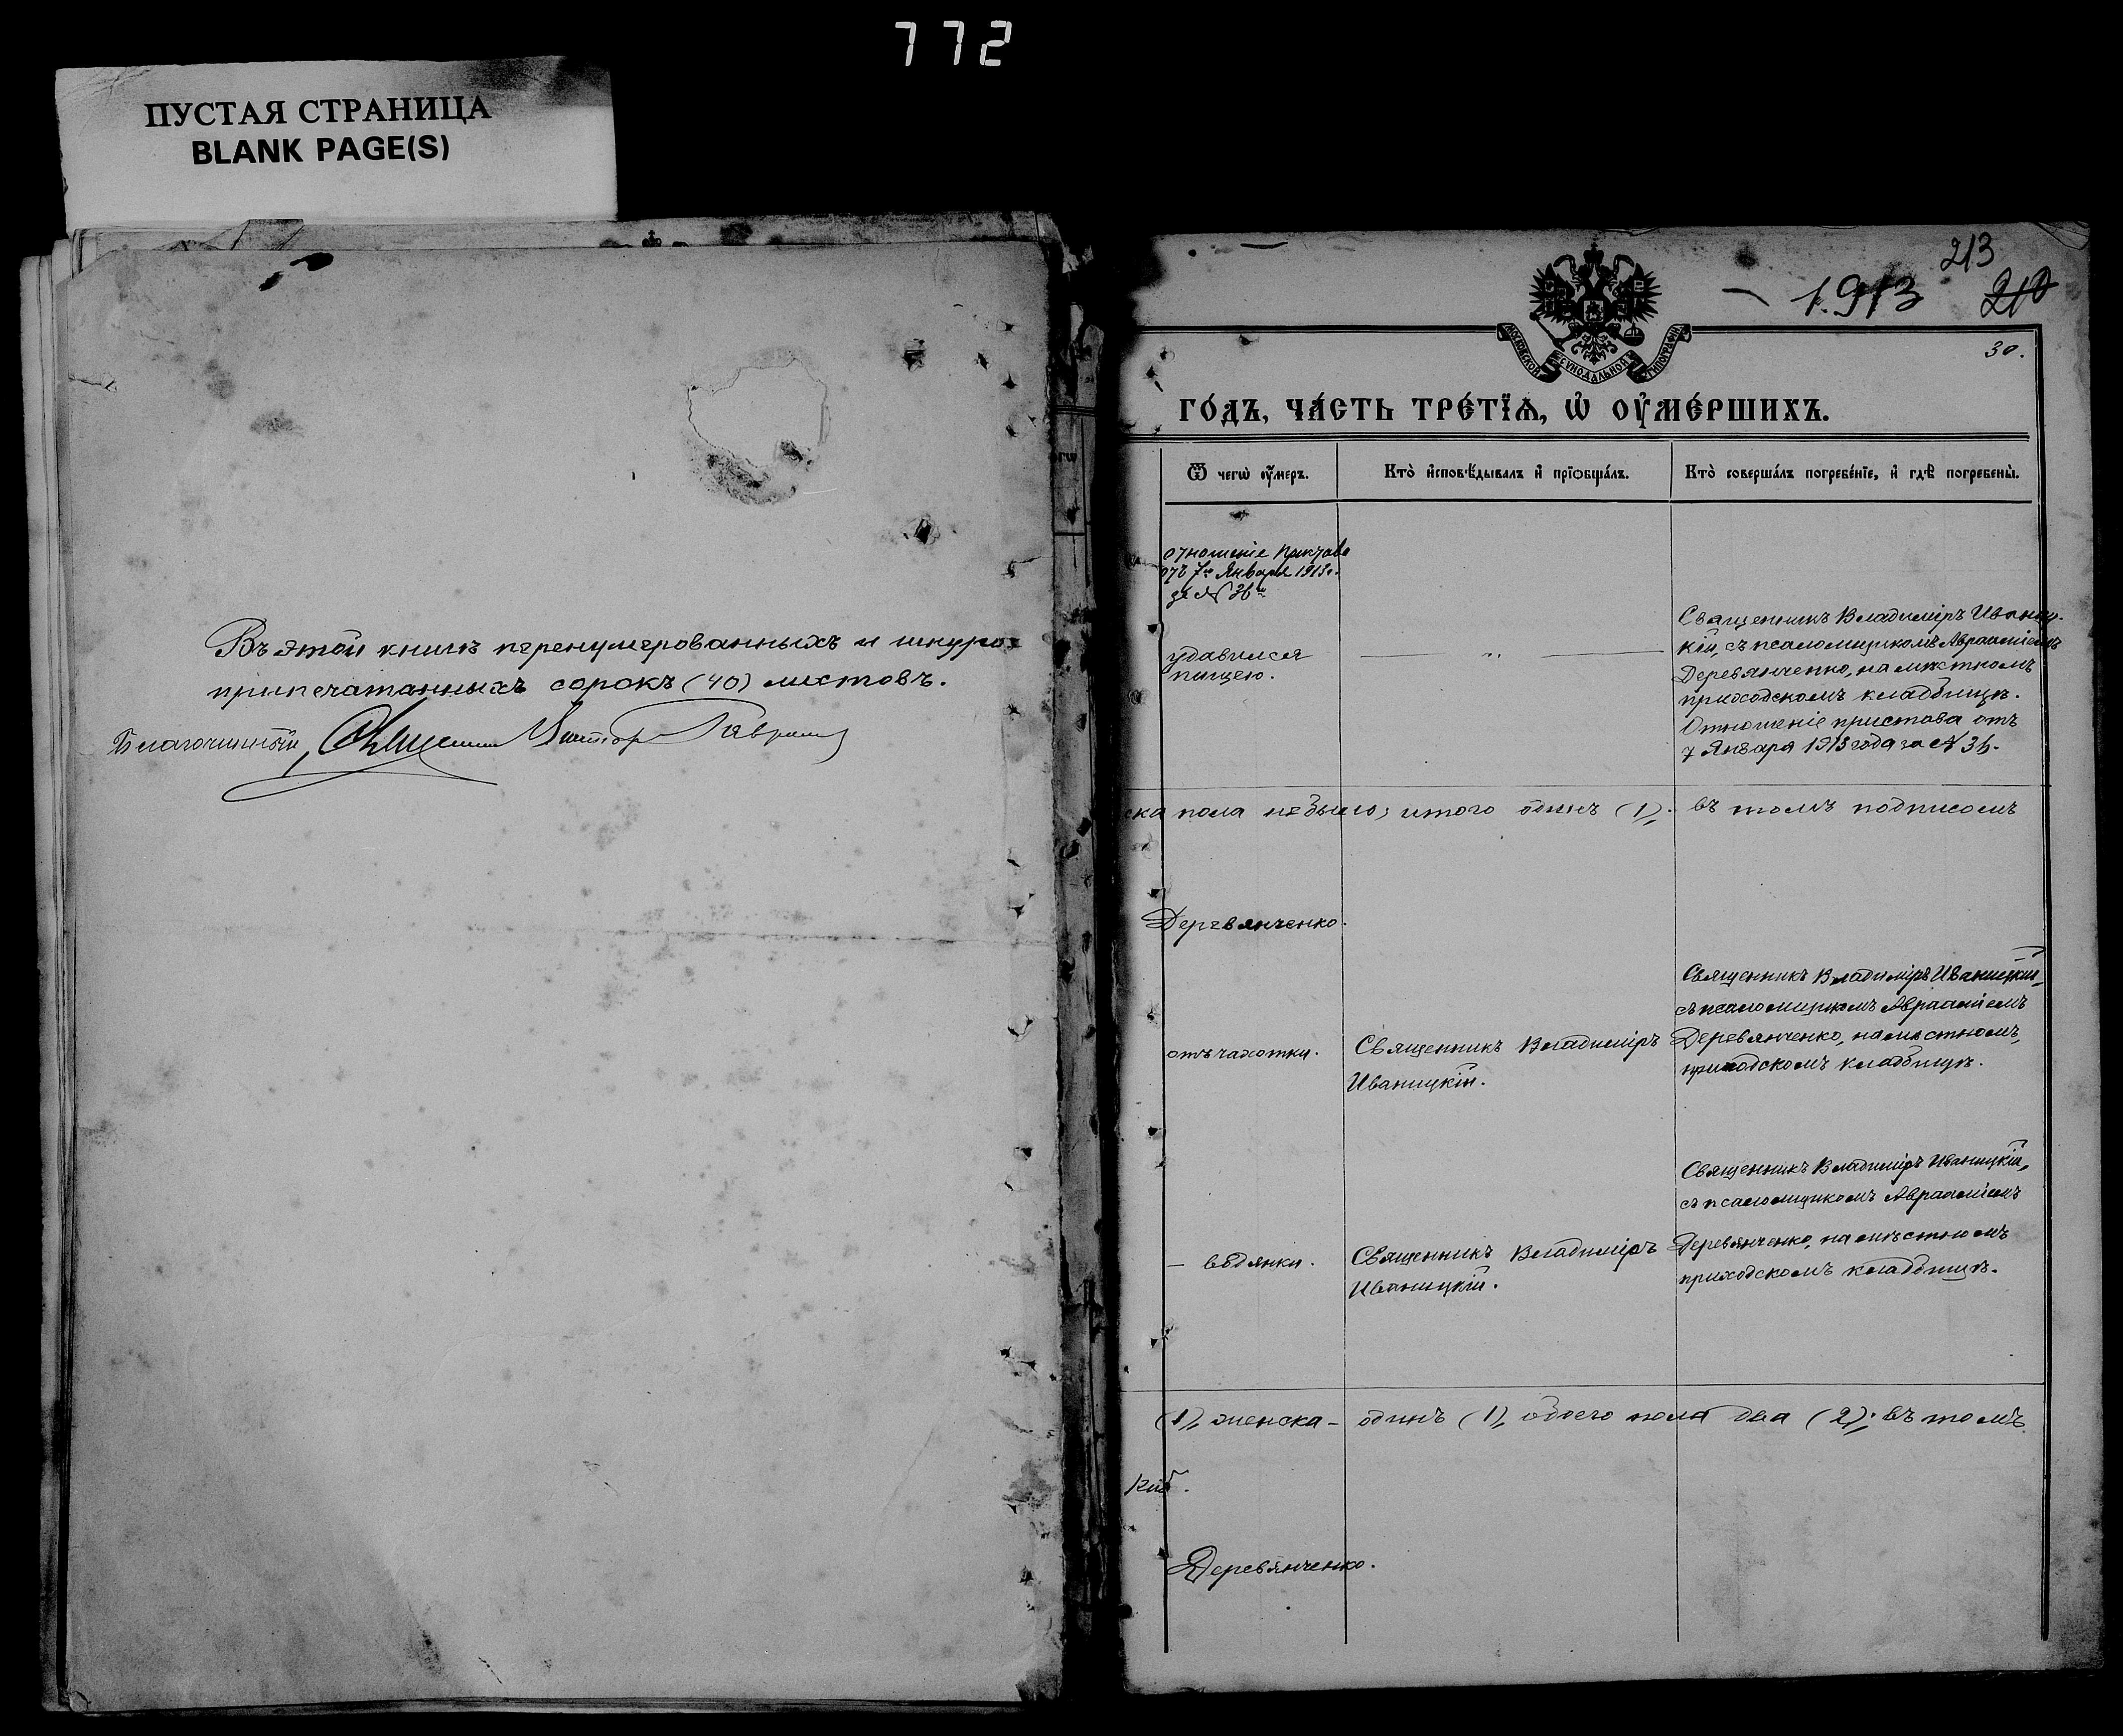 772
ПУСТАЯ СТРАНИЦА
BLANK PAGE(S)
Въ этой книгѣ перенумерованныхъ и шнуро-
припечатанныхъ сорокъ (40) листовъ.
Благочинный, Священникъ Викторъ
213
1913 210
МОСКОВСКОЙ СѴНОДАЛЬНОЙ ТИПОГРАФІИ
30.
ГО́ДЪ, ЧА́СТЬ ТРЕ́ТЇѦ, Ѡ҆ ОУ҆МЕ́РШИХЪ.
Ѿ чегѡ̀ оу҆́меръ.
Кто̀ и҆сповѣ́дывалъ и҆ прїѻбща́лъ.
Кто̀ соверша́лъ погребе́нїе, и҆ гдѣ̀ погребены̀.
отношеніе Пристава
отъ 7го Января 1913 г.
за № 36
удавился
пищею.
"
Священникъ Владиміръ Иваниц-
кій, съ псаломщикомъ Авраамiемъ
Деревянченко, на мѣстномъ
приходскомъ кладбищѣ.
Отношеніе пристава отъ
7 Января 1913 года за № 36.
ска пола не было; итого одинъ (1). въ томъ подписомъ
Деревянченко.
отъ чахотки.
Священникъ Владиміръ
Иваницкій.
Священникъ Владиміръ Иваницкій,
съ псаломщикомъ Авраамiемъ
Деревянченко, на мѣстномъ,
приходскомъ кладбищѣ.
— водянки.
Священникъ Владиміръ
Иваницкій.
Священникъ Владиміръ Иваницкій,
съ псаломщикомъ Авраамiемъ
Деревянченко, на мѣстномъ
приходскомъ кладбищѣ.
(1), женска — одинъ (1), обоего пола два (2); въ томъ
кій.
Деревянченко.